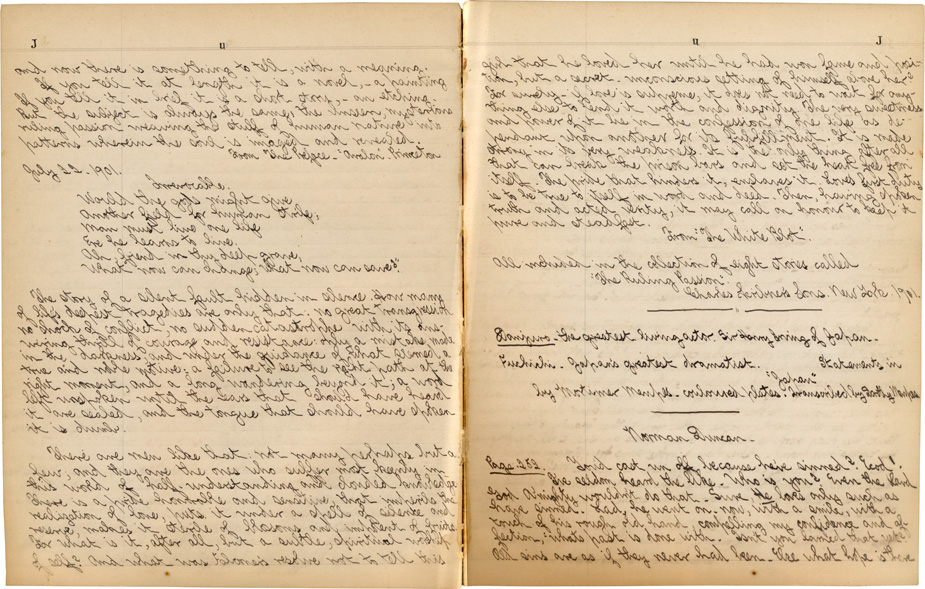 J u
and now there is something to tell, with a meaning.
If you tell it at length it is a novel, - a painting
If you tell it in brief it is a short story, - an etching.
But the subject is always the same, the unseen, mysterious
ruling passion weaving the stuff of human nature into
patterns wherein the soul is imaged and revealed.
From "The Preface. "Avalon". Princeton
July 22. 1901.
Irrevocable.
Would the gods might give
Another field for human strife;
Man must live one life
Ere he learns to live.
Ah, friend in thy deep grave,
What now can change; what now can save?"
The story of a silent guilt hidden in silence. How many
of life's deepest tragedies are only that: no great transgression
no shock of conflict, no sudden catastrophe with its ans-
wering thrill of courage and resistance: only a mistake made
in the darkness and under the guidance of what seemed a
true and noble motive; a failure to see the right path at the
right moment, and a long wandering beyond it; a word
left unspoken until the ears that should have heard
it are sealed, and the tongue that should have spoken
it is dumb.
There are men like that: not many perhaps but a
few, and they are the ones who suffer most keenly in
this world of half-understanding and clouded knowledge.
There is a pride, honorable and sensitive, that imperils the
realization of love, puts it under a spell of silence and
reserve, makes it sterile of blossoms and impotent of fruits
For what is it, after all, but a subtle, spiritual worship
of self? And what was Falconer's resolve not to tell this
u J
girl that he loved her until he had won fame and posi-
tion, but a secret, unconscious setting of himself above her?
For surely, if love is supreme, it does not need to wait for any-
thing else to lend it worth and dignity. The very sweetness
and power of it lie in the confession of one life as de-
pendent upon another for its fulfilment. It is made
strong in its very weakness. It is the only thing, after all
that can break the prison bars and set the heart free from
itself. The pride that hinders it, enslaves it. Love's first duty
is to be true to itself, in word and deed. Then, having spoken
truth and acted verity, it may call on honor to keep it
pure and steadfast.
From "The White Blot".
All included in the collection of eight stories called
"The Ruling Passion".
Charles Scribner's Sons. New York. 1901.
Danjuro - the greatest living actor & extraordinary of Japan.
Fukuchi - Japan's greatest dramatist. Statements in
"Japan"
by Mortimer Menpes - coloured plates - transcribed by Dorothy Menpes
Norman Duncan -
Page 232. "God cast un off because he've sinned? God!".
I've seldom heard the like. Who is you? Even the Lard
God A'mighty wouldn't do that. Sure, He loves only such as
have sinned. Lad, he went on, now, with a smile, with a
touch of his rough old hand, compelling my confidence and af-
fection, what's past is done with. Isn't you learned that yet?
Old sins are as if they never had been. Else what hope is there